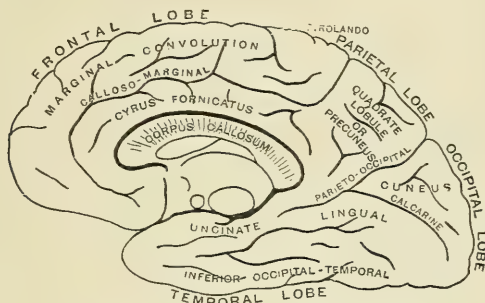 FRONTAL LOBE
F. ROLANDO
PARIETAL LOBE
MARGINAL CONVOLUTION
CALLOSO-MARGINAL
GYRUS FORNICATUS
CORPUS CALLOSUM
QUADRATE
LOBULE
OR
PRECUNEUS
PARIETO-OCCIPITAL
OCCIPITAL LOBE
CUNEUS
CALCARINE
LINGUAL
UNCINATE
INFERIOR-OCCIPITAL-TEMPORAL
TEMPORAL LOBE